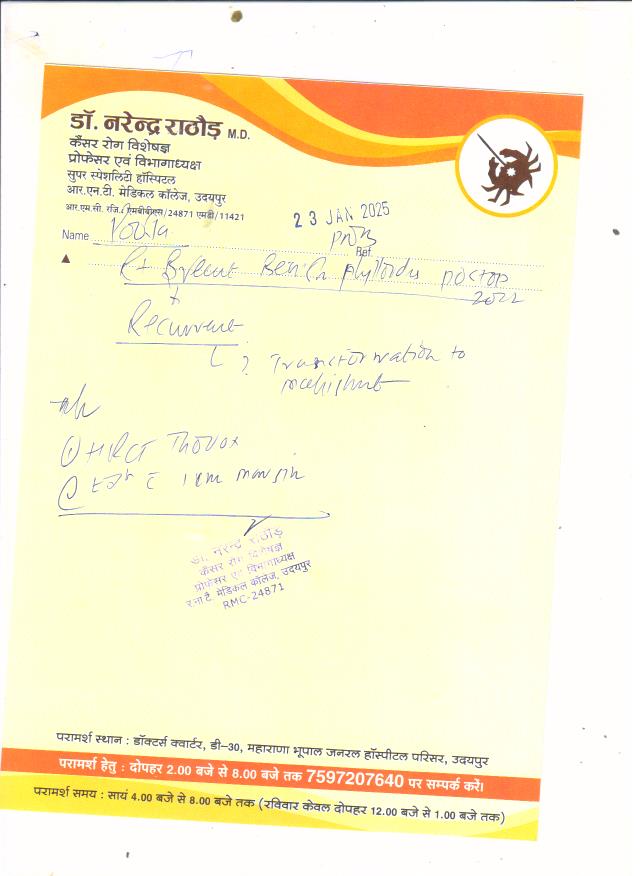 डॉ. नरेन्द्र राठौड़ M.D.
कैंसर रोग विशेषज्ञ
प्रोफेसर एवं विभागाध्यक्ष
सुपर स्पेशलिटी हॉस्पिटल
आर.एन.टी. मेडिकल कॉलेज, उदयपुर
आर.एम.सी. रजि.: एमबीबीएस/24871 एमडी/11421
23 JAN 2025
Name
Ref.
Rt Breast Benign phyllodes
2022
Recurrent
? Transformation to
malignant
① HRCT Thorax
② 1 cm margin
डॉ. नरेन्द्र राठौड़
कैंसर रोग विशेषज्ञ
प्रोफेसर एवं विभागाध्यक्ष
र.ना.टै. मेडिकल कॉलेज, उदयपुर
RMC-24871
परामर्श स्थान : डॉक्टर्स क्वार्टर, डी-30, महाराणा भूपाल जनरल हॉस्पीटल परिसर, उदयपुर
परामर्श हेतु : दोपहर 2.00 बजे से 8.00 बजे तक 7597207640 पर सम्पर्क करें।
परामर्श समय : सायं 4.00 बजे से 8.00 बजे तक (रविवार केवल दोपहर 12.00 बजे से 1.00 बजे तक)